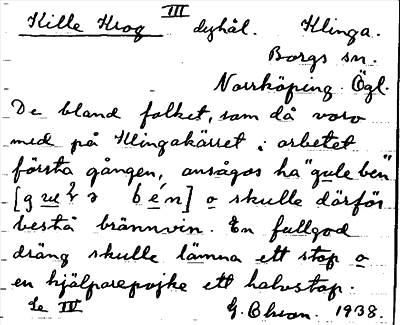 III
Kille Krog dyhål. Klinga.
Borgs sn.
Norrköping. Ögl.
De bland folket, som då voro
med på Klingakärret i arbetet
första gången, ansågos ha "gule ben"
bén] o skulle därför
bestå brännvin. En fullgod
dräng skulle lämna ett stop o
en hjälparepojke ett halvstop.
Se IV G. 1938.